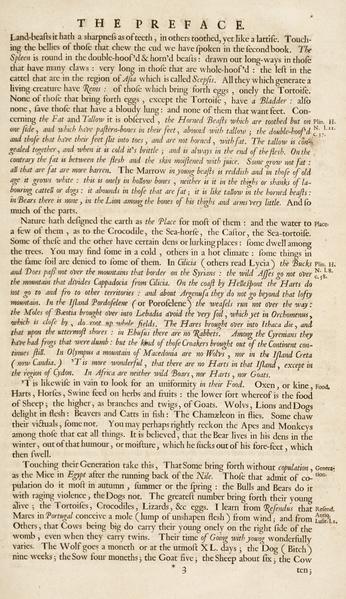 THE PREFACE.
Land-beasts it hath a sharpness as of teeth, in others toothed, yet like a lattise. Touch-
ing the bellies of those that chew the cud we have spoken in the second book. The
Spleen is round in the double-hoof'd & horn'd beasts: drawn out long-ways in those
that have many claws: very long in those that are whole-hoof'd: the left in the
cattel that are in the region of Asia which is called Scepsis. All they which generate a
living creature have Reins: of those which bring forth eggs, onely the Tortoise.
None of those that bring forth eggs, except the Tortoise, have a Bladder: also
none, save those that have a bloody lung: and none of them that want feet. Con-
cerning the Fat and Tallow it is observed, the Horned Beasts which are toothed but on
one side, and which have pastern-bones in their feet, abound with tallow; the double-hoof'd
and those that have their feet slit into toes, and are not horned, with fat. The tallow is con-
gealed together, and when it is cold it's brittle; and is always in the end of the flesh. On the
contrary the fat is between the flesh and the skin moistened with juice. Some grow not fat:
all that are fat are more barren. The Marrow in young beasts is reddish and in those of old
age it grows white: this is onely in hollow bones, neither is it in the thighs or shanks of la-
bouring cattell or dogs: it abounds in those that are fat; it is like tallow in the horned beasts:
in Bears there is none, in the Lion among the bones of his thighs and arms very little. And so
much of the parts.
Nature hath designed the earth as the Place for most of them: and the water to
a few of them, as to the Crocodile, the Sea-horse, the Castor, the Sea-tortoise.
Some of these and the other have certain dens or lurking places: some dwell among
the trees. You may find some in a cold, others in a hot climate: some things in
the same soil are denied to some of them. In Cilicia (others read Lycia) the Bucks
and Does pass not over the mountains that border on the Syrians: the wild Asses go not over
the mountain that divides Cappadocia from Cilicia. On the coast by Hellespont the Harts do
not go to and fro to other territories: and about Argenusa they do not go beyond that lofty
mountain. In the Island Pordoselene (or Poroselene) the weasels run not over the way:
the Moles of Bœotia brought over into Lebadia avoid the very soil, which yet in Orchomenus,
which is close by, do root up whole fields. The Hares brought over into Ithaca die, and
that upon the uttermost shores: in Ebusus there are no Rabbets. Among the Cyrenians they
have had frogs that were dumb: but the kind of those Croakers brought out of the Continent con-
tinues still. In Olympus a mountain of Macedonia are no Wolvs, nor in the Island Creta
(now Candia.) 'Tis more wonderful, that there are no Harts in that Island, except in
the region of Cydon. In Africa are neither wild Boars, nor Harts, nor Goats.
'Tis likewise in vain to look for an uniformity in their Food. Oxen, or kine,
Harts, Horses, Swine feed on herbs and fruits: the lower sort whereof is the food
of Sheep; the higher, as branches and twigs, of Goats. Wolvs, Lions and Dogs
delight in flesh: Beavers and Catts in fish: The Chamæleon in flies. Some chaw
their victuals, some not. You may perhaps rightly reckon the Apes and Monkeys
among those that eat all things. It is believed, that the Bear lives in his dens in the
winter, out of that humour, or moisture, which he sucks out of his fore-feet, which
then swell.
Touching their Generation take this, That Some bring forth without copulation,
as the Mice in Egypt after the running back of the Nile. Those that admit of co-
pulation do it most in autumn, summer or the spring: the Bulls and Bears do it
with raging violence, the Dogs not. The greatest number bring forth their young
alive; the Tortoises, Crocodiles, Lizards, &c. eggs. I learn from Resendus that
Mares in Portugal conceive a mole (lump of unshapen flesh) from wind; and from
Others, that Cows being big do carry their young onely on the right side of the
womb, even when they carry twins. Their time of Going with young wonderfully
varies. The Wolf goes a moneth or at the utmost XL. days; the Dog (Bitch)
nine weeks; the Sow four moneths; the Goat five; the Sheep about six; the Cow
* 3
ten;
Plin. H.
N. l.11.
c. 37.
Place.
Plin. H.
N. l.8.
c. 58.
Food.
Genera-
tion.
Resend.